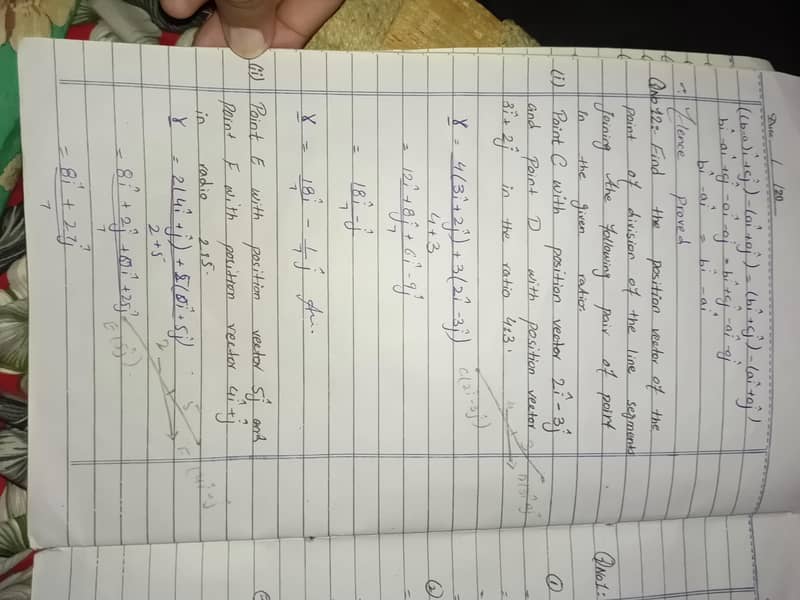 Date __/__/20__
((b-a)i+cj)-(ai+aj) = (bi+cj)-(ai+aj)
bi-ai+cj-ai-aj = bi+cj-ai-aj
bi-ai = bi-ai
∴ Hence proved
Q No 12:- Find the position vector of the
point of division of the line segments
Joining the following pair of point
In the given ratio:
(i) Point C with position vector 2i-3j
and Point D with position vector
3i+2j in the ratio 4:3.
C(2i-3j)
r = 4(3i+2j)+3(2i-3j)
4+3
= 12i+8j+6i-9j
7
= 18i-j
7
r = 18i - 1j Ans.
7
(ii) Point E with position vector 5j and
point F with position vector 4i+j
in radio 2:5.
r = 2(4i+j)+5(0i+5j)
2+5
= 8i+2j+0i+25j
7
E(5j)
2
5
= 8i+27j
7
Q No 1:
(1)
(2)